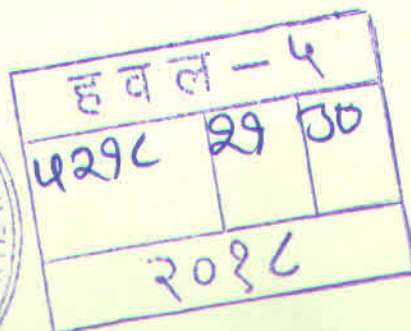 हवल - ५
५२१८ २१ ७०
२०१८